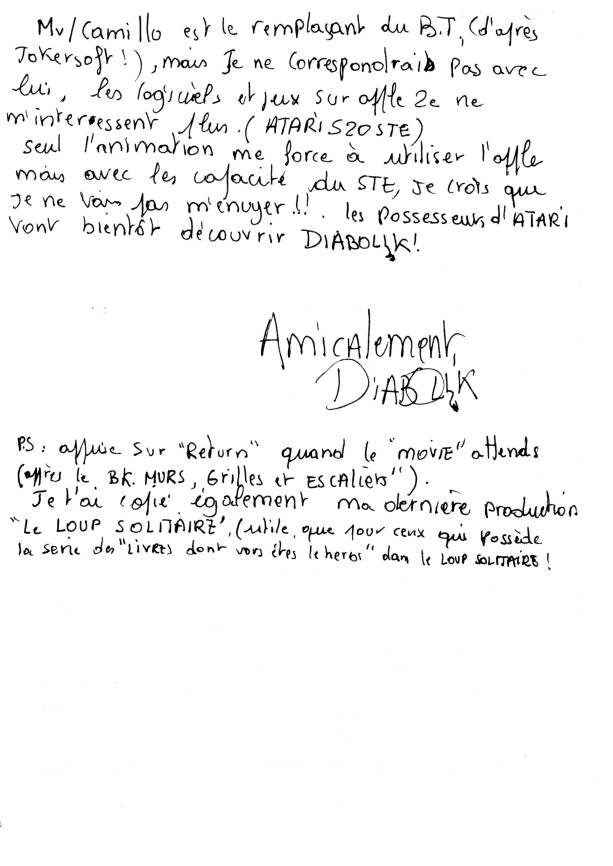 Mv/Camillo est le remplaçant du B.T, (d'après
Jokersoft!), mais Je ne Correspondrais pas avec
lui, les logiciels et jeux sur apple 2e ne
m'interessent plus. (ATARI 520 STE)
seul l'animation me force à utiliser l'apple
mais avec les capacité du STE, je crois que
Je ne vais pas m'enuyer!!. les possesseurs d'ATARI
vont bientôt découvrir DIABOLIK!
Amicalement,
DIABOLIK
P.S: appuie sur "Return" quand le "MOVIE" attends
(après le BK. MURS, Grilles et ESCAliers").
Je t'ai copié également ma dernière production
"Le LOUP SOLITAIRE", (utile que pour ceux qui possède
la serie des "LIVRES dont vous êtes le heros" dans le LOUP SOLITAIRE!